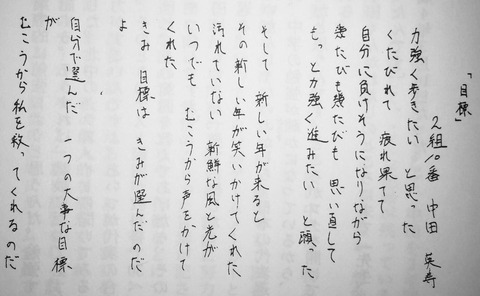 「目標」
2組10番 中田 英寿
力強く歩きたい と思った
くたびれて 疲れ果てて
自分に負けそうになりながら
幾たびも幾たびも 思い直して
もっと力強く進みたい と願った
そして 新しい年が来ると
その新しい年が笑いかけてくれた
汚れていない 新鮮な風と光が
いつでも むこうから声をかけて
くれた
きみ 目標は きみが選んだのだ
よ
自分で選んだ 一つの大事な目標
が
むこうから私を救ってくれるのだ